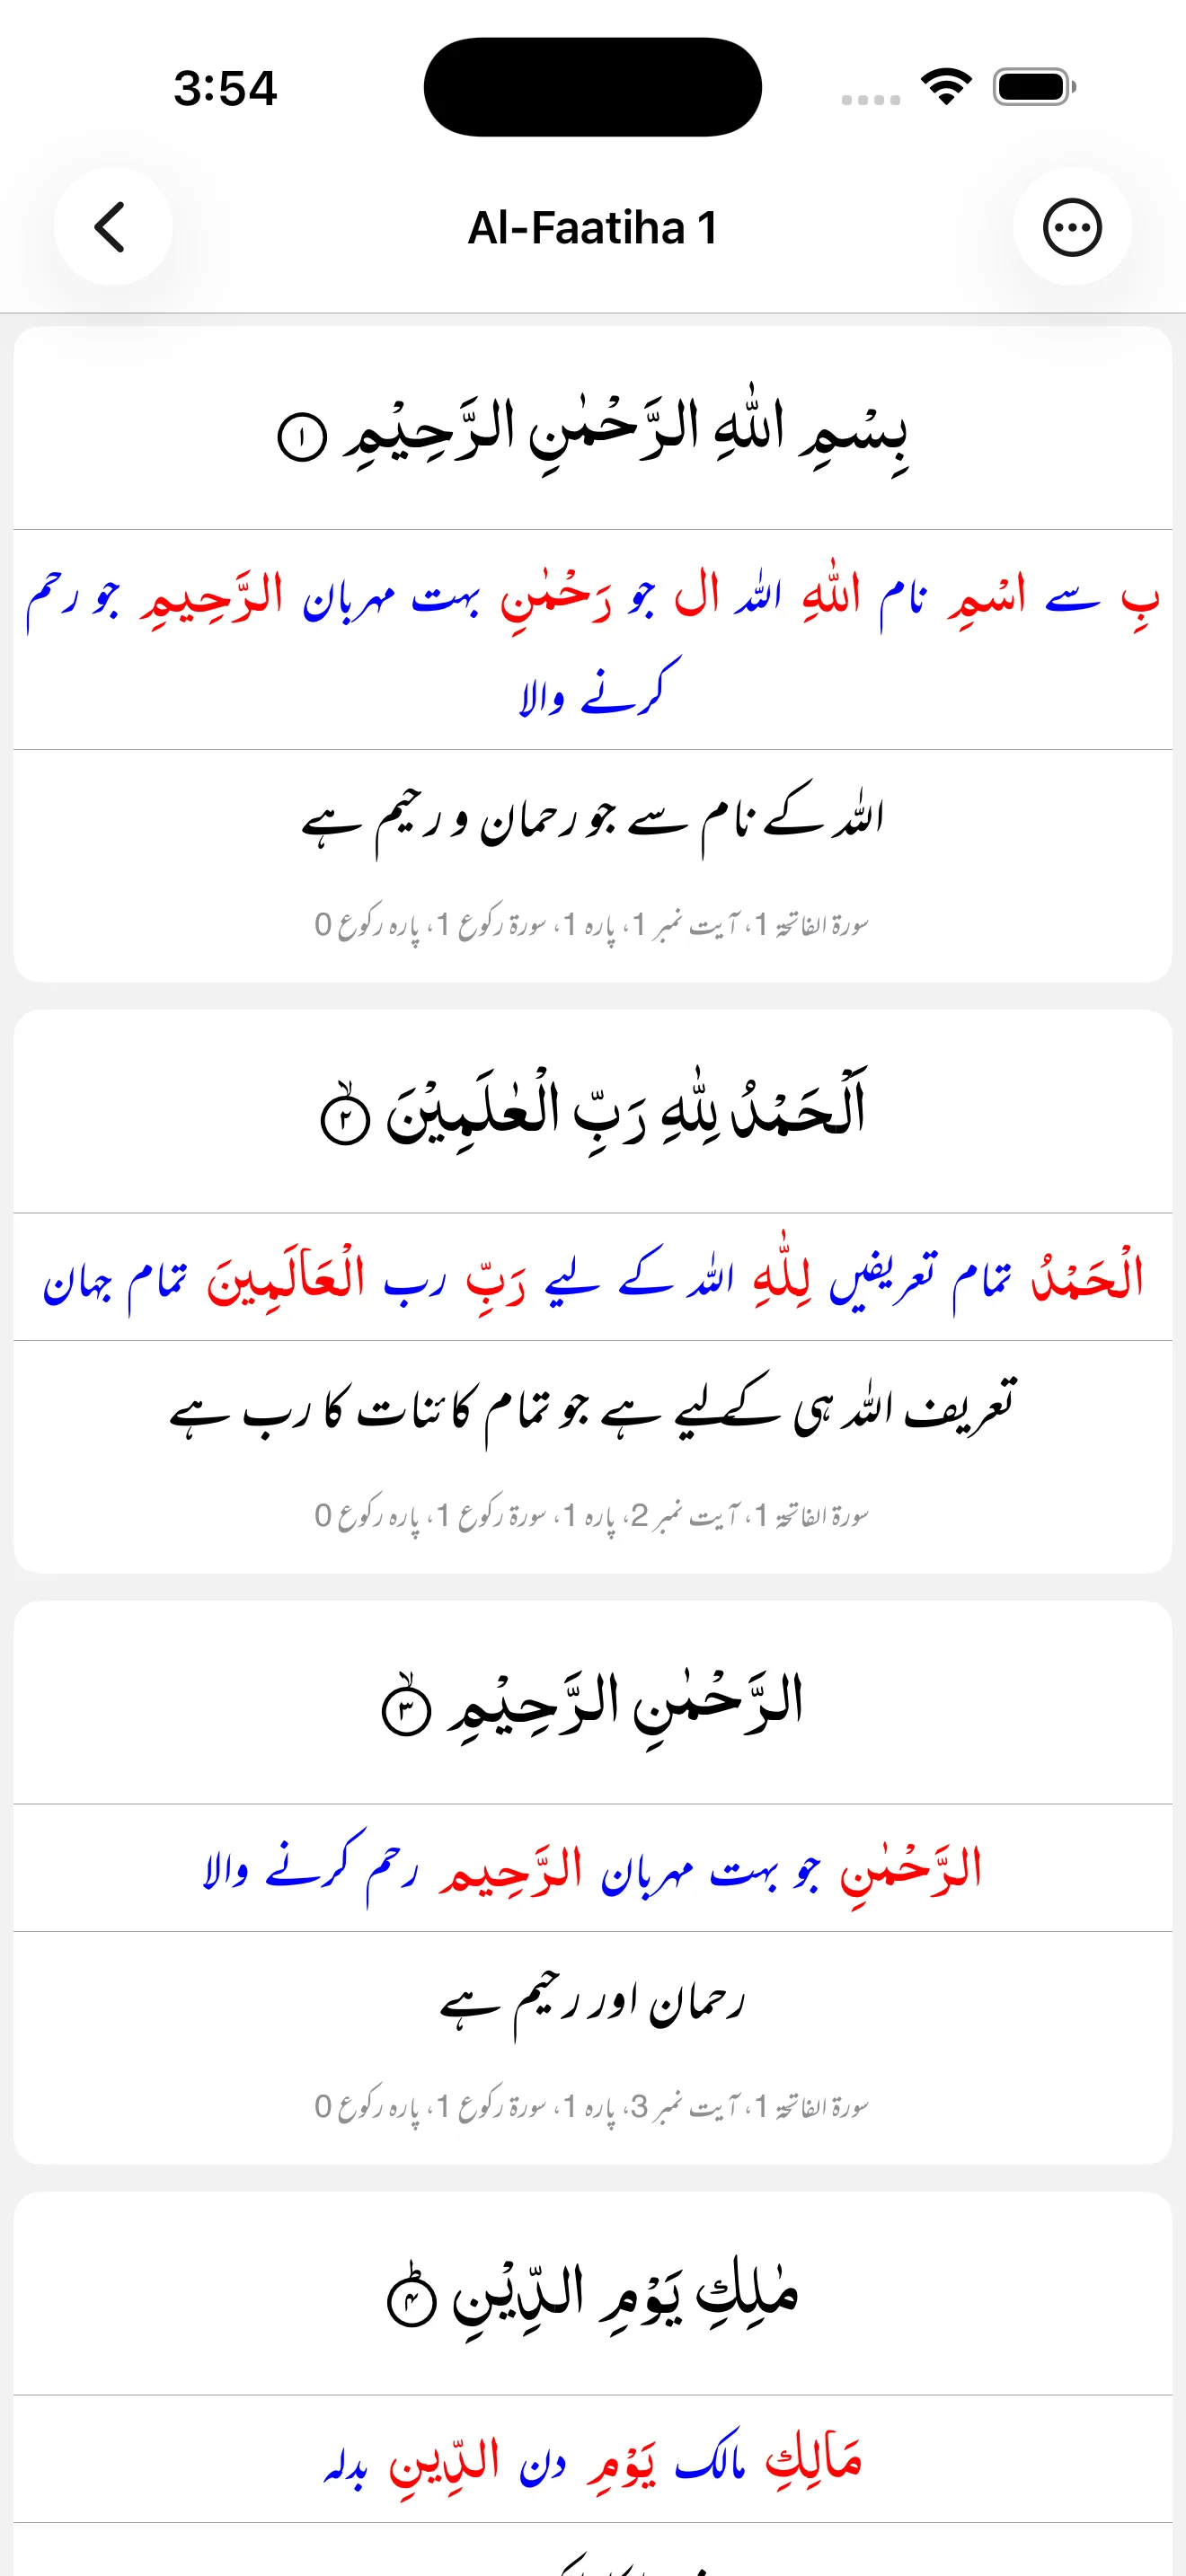 3:54
Al-Faatiha 1
بِسْمِ اللّٰهِ الرَّحْمٰنِ الرَّحِيْمِ ۝١
بِ سے اسْمِ نام اللّٰهِ اللہ ال جو رَحْمٰنِ بہت مہربان الرَّحِيمِ جو رحم
کرنے والا
اللہ کے نام سے جو رحمان و رحیم ہے
سورۃ الفاتحۃ 1، آیت نمبر 1، پارہ 1، سورۃ رکوع 1، پارہ رکوع 0
اَلْحَمْدُ لِلّٰهِ رَبِّ الْعٰلَمِيْنَ ۙ۝٢
الْحَمْدُ تمام تعریفیں لِلّٰهِ اللہ کے لیے رَبِّ رب الْعَالَمِينَ تمام جہان
تعریف اللہ ہی کے لیے ہے جو تمام کائنات کا رب ہے
سورۃ الفاتحۃ 1، آیت نمبر 2، پارہ 1، سورۃ رکوع 1، پارہ رکوع 0
الرَّحْمٰنِ الرَّحِيْمِ ۙ۝٣
الرَّحْمٰنِ جو بہت مہربان الرَّحِيم رحم کرنے والا
رحمان اور رحیم ہے
سورۃ الفاتحۃ 1، آیت نمبر 3، پارہ 1، سورۃ رکوع 1، پارہ رکوع 0
مٰلِكِ يَوْمِ الدِّيْنِ ؕ۝۴
مَالِكِ مالک يَوْمِ دن الدِّينِ بدلہ